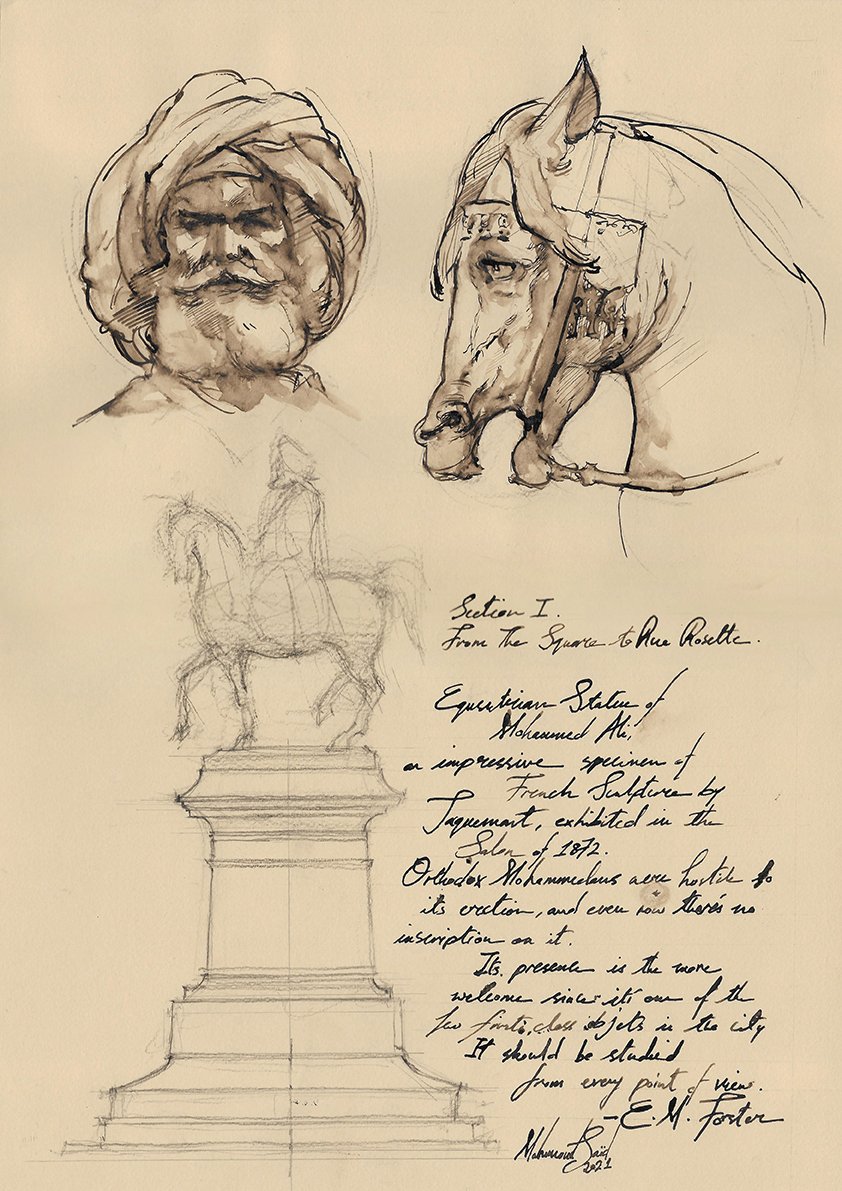 Section I.
From The Square to Rue Rosette.
Equestrian Statue of
Mohammed Ali,
an impressive specimen of
French Sculpture by
Jaquemart, exhibited in the
Salon of 1872.
Orthodox Mohammedans were hostile to
its erection, and even now there's no
inscription on it.
Its presence is the more
welcome since it's one of the
few first, class objets in the city
It should be studied
from every point of view.
- E. M. Forster
Mahmoud Saïd
2021